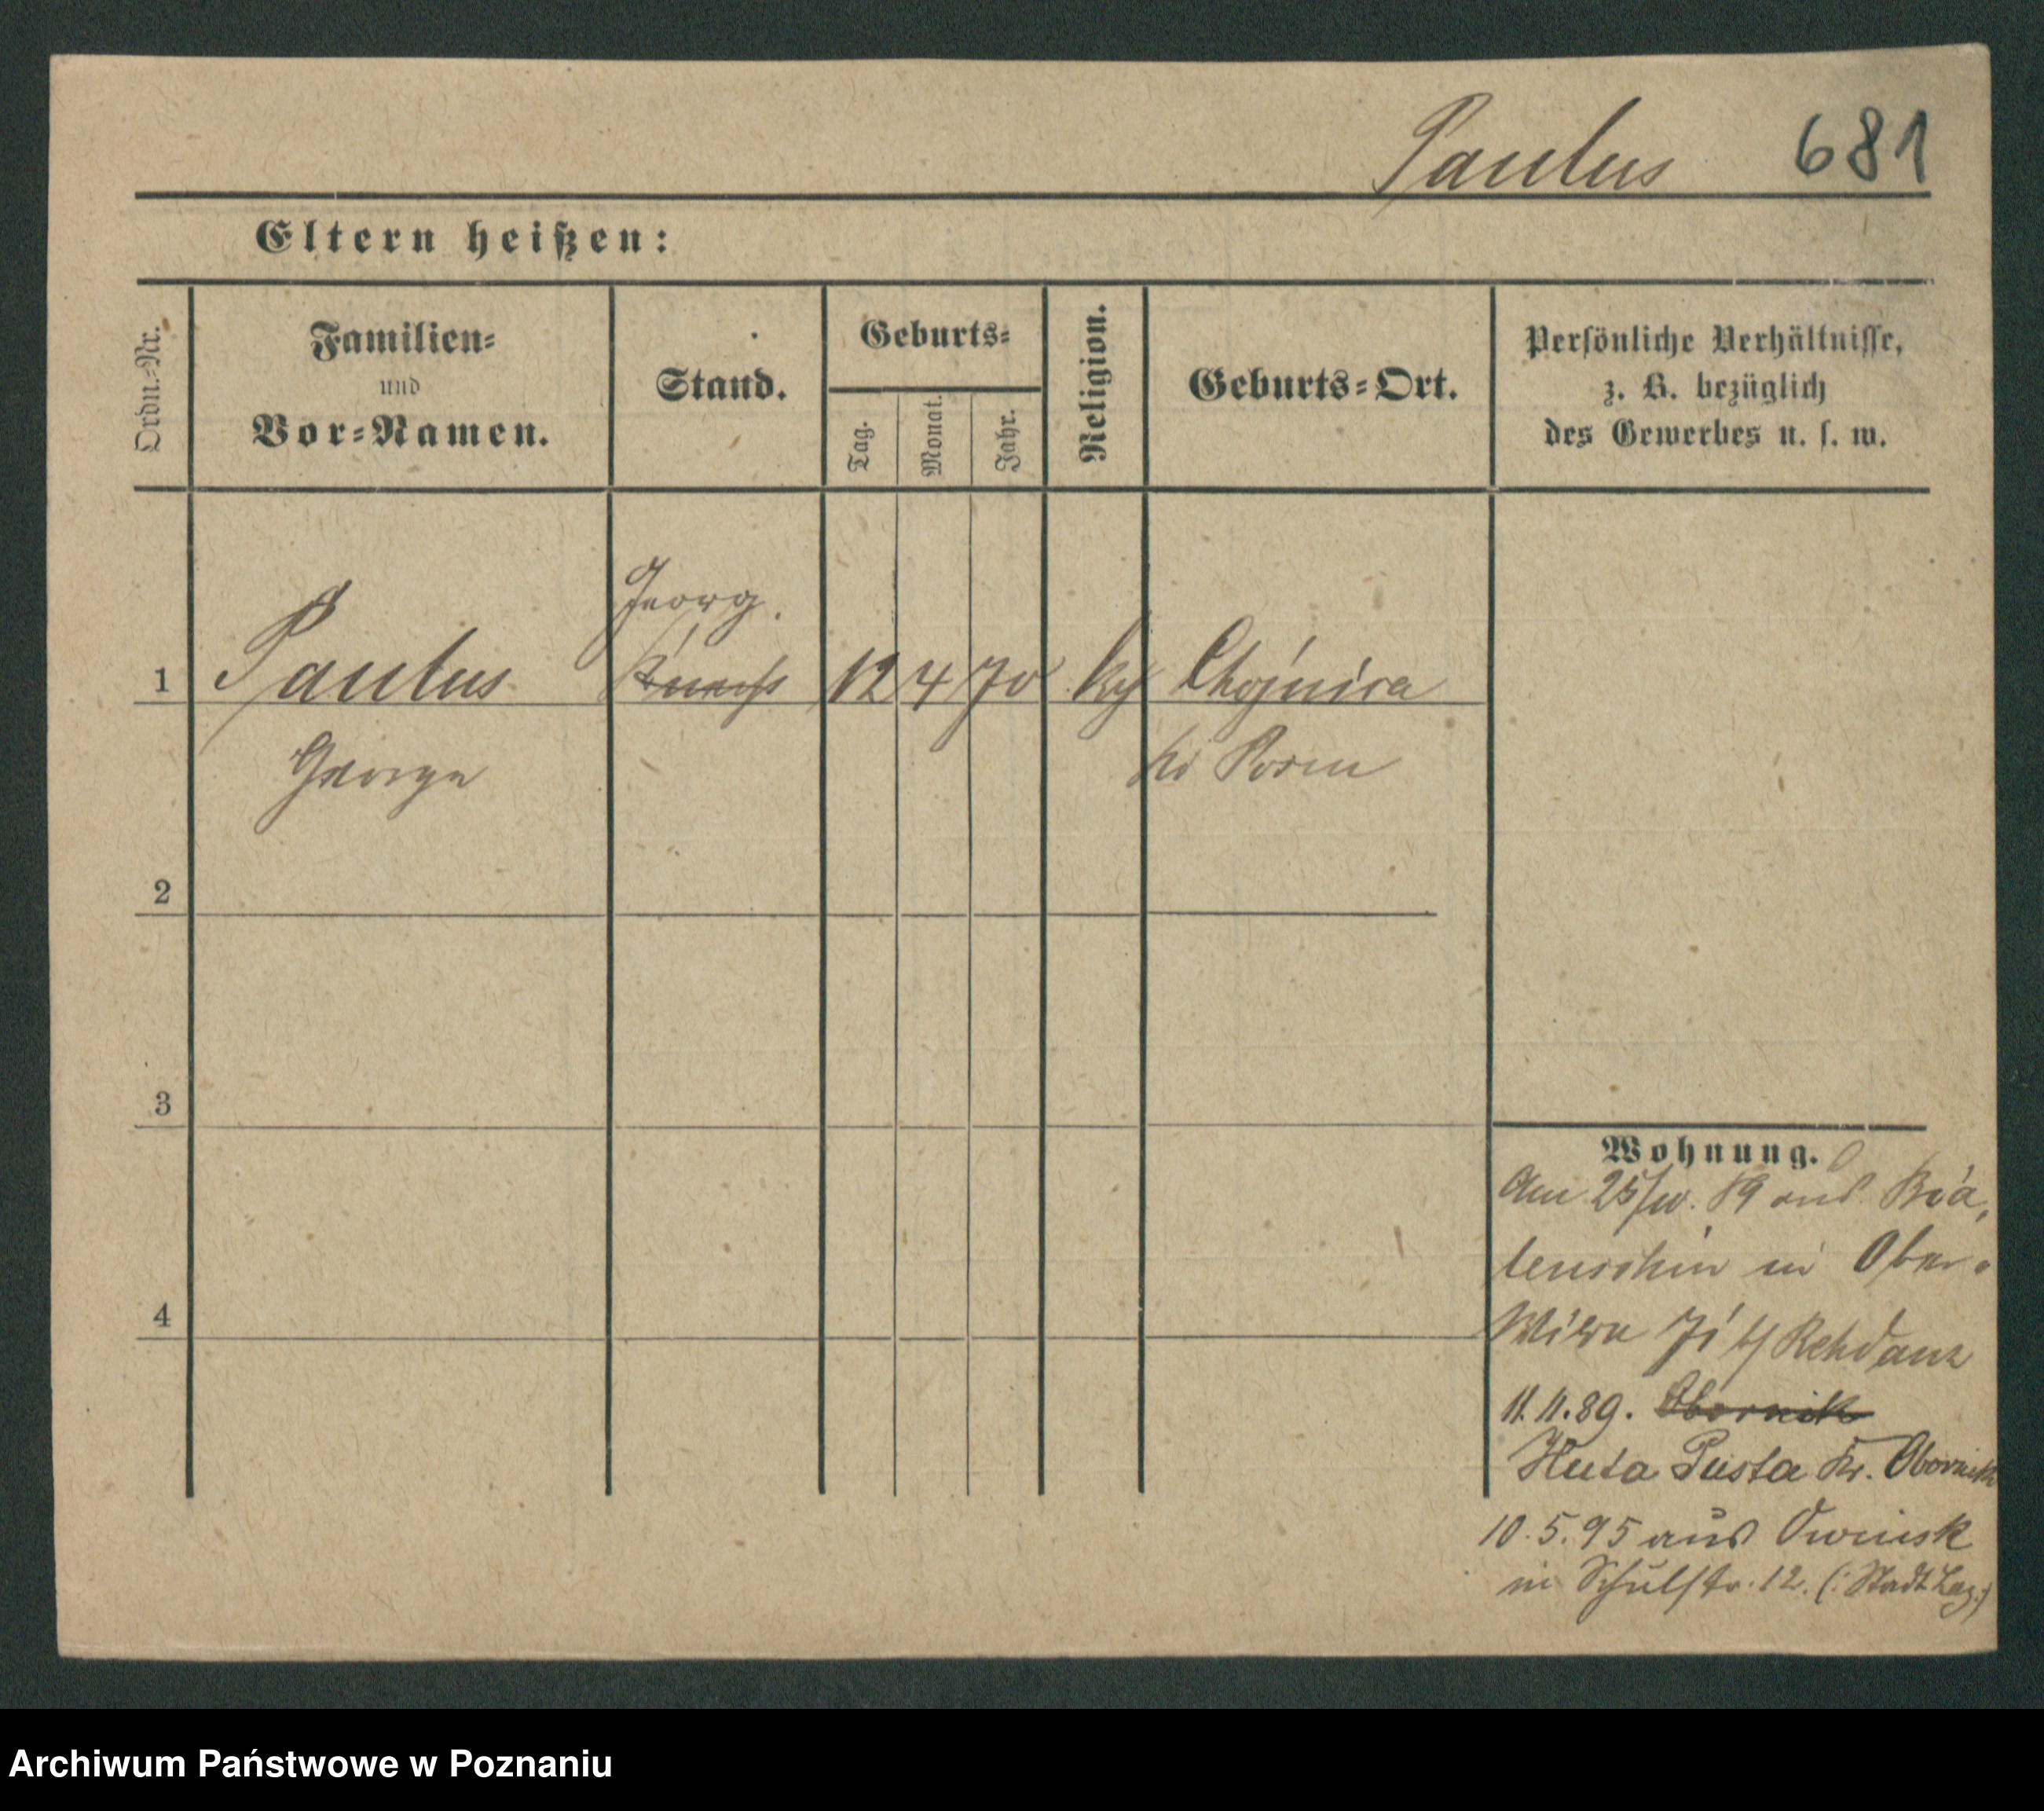 Paulus 681
Eltern heißen:
Ordn.-Nr.
Familien-
und
Vor-Namen.
Stand.
Geburts-
Tag.
Monat.
Jahr.
Religion.
Geburts-Ort.
Persönliche Verhältnisse,
z. B. bezüglich
des Gewerbes u. s. w.
Georg.
1 Paulus 12 4 70 Chojnica
George Posen
2
3
4
Wohnung.
Am 25/10. 89 aus Bia,
lenschin in Ober-
Wilda Rehdanz
11.11.89. Obornik
Huta Pusta Kr. Obornik
10.5.95 aus Owinsk
in Schulstr. 12. (: Stadt Laz.:)
Archiwum Państwowe w Poznaniu